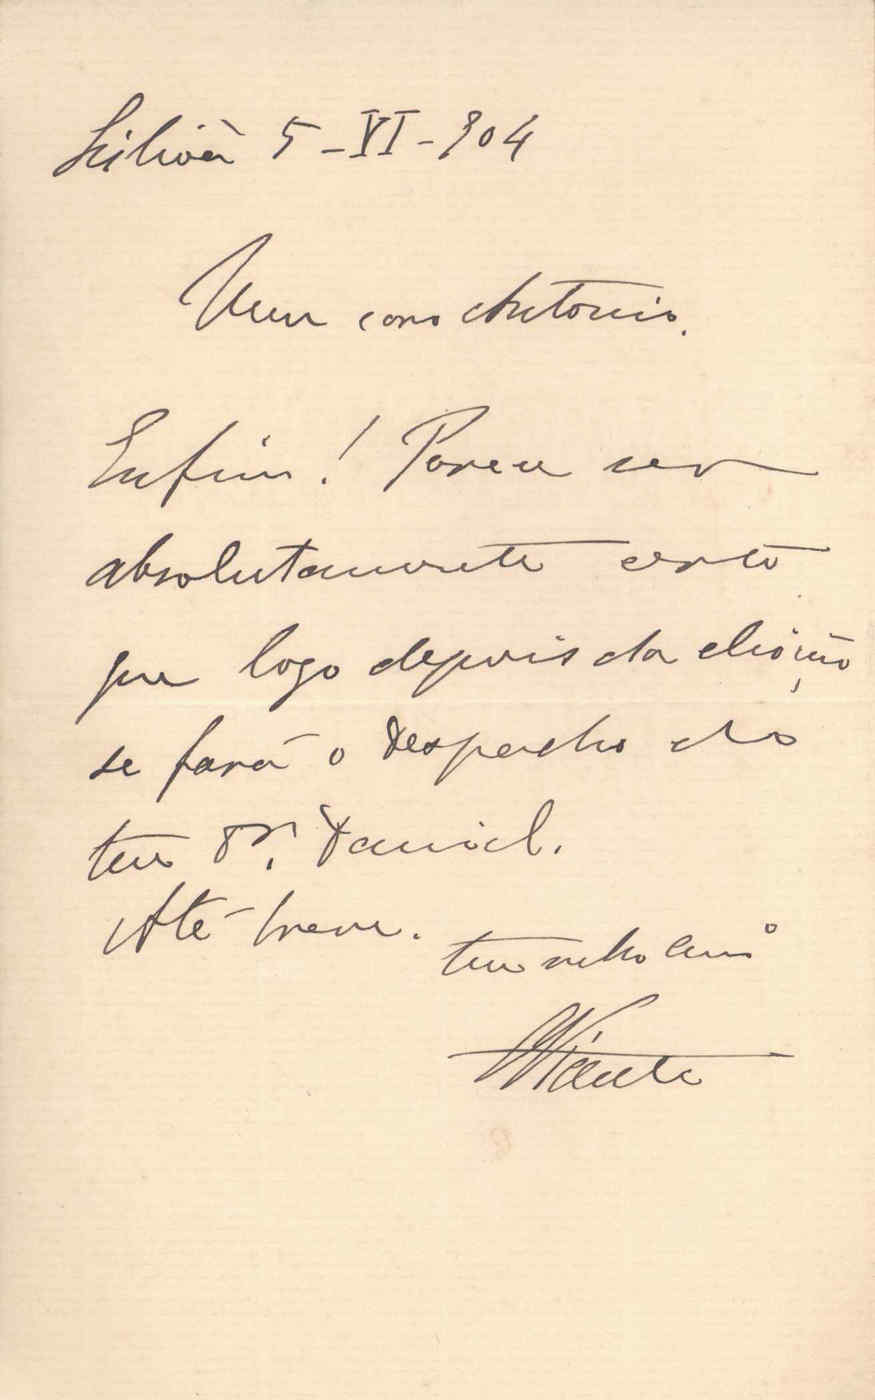 Lisboa 5-VI-904
Meu caro Antonio.
Enfim! Parece ser
absolutamente certo
que logo depois da eleição
se fará o despacho do
teu Dr. Daniel.
Até breve.
teu velho amº
Vicente